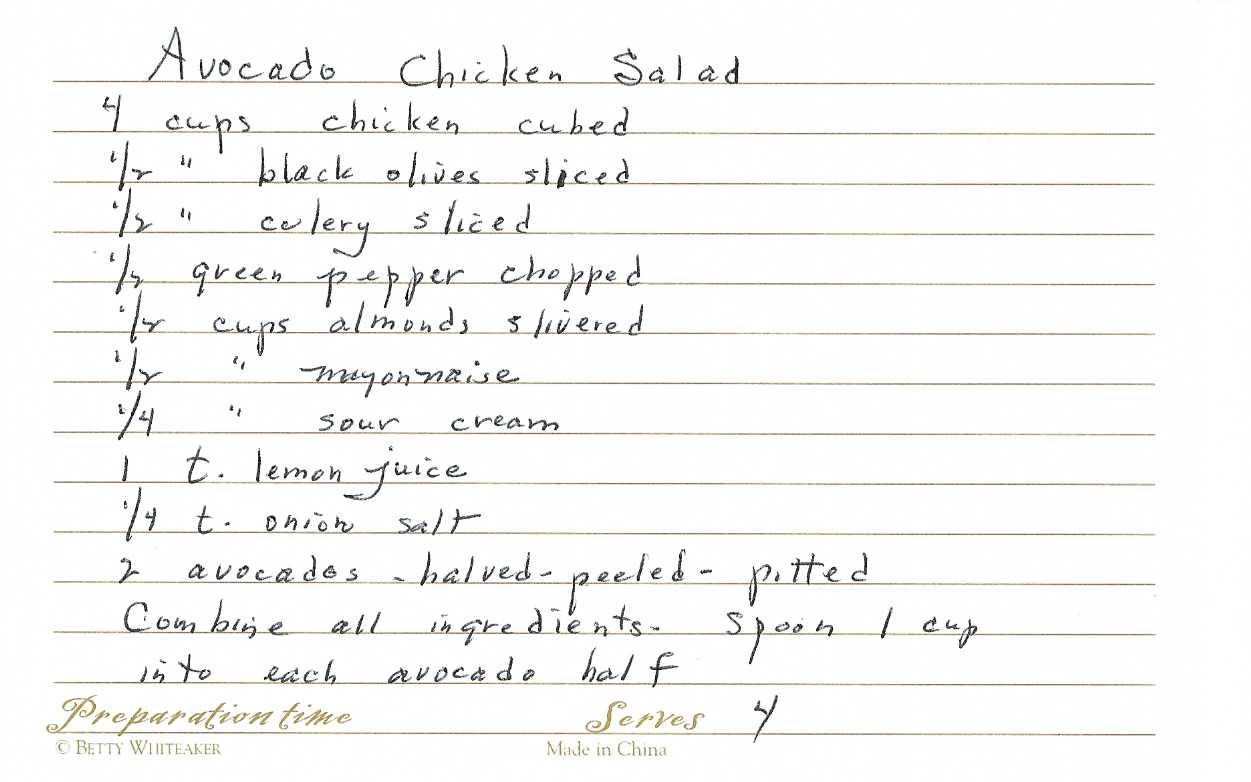 Avocado Chicken Salad
4 cups chicken cubed
1/2 " black olives sliced
1/2 " celery sliced
1/2 green pepper chopped
1/2 cups almonds slivered
1/2 " mayonnaise
1/4 " sour cream
1 t. lemon juice
1/4 t. onion salt
2 avocados - halved - peeled - pitted
Combine all ingredients. Spoon 1 cup
into each avocado half
Preparation time Serves 4
© BETTY WHITEAKER Made in China